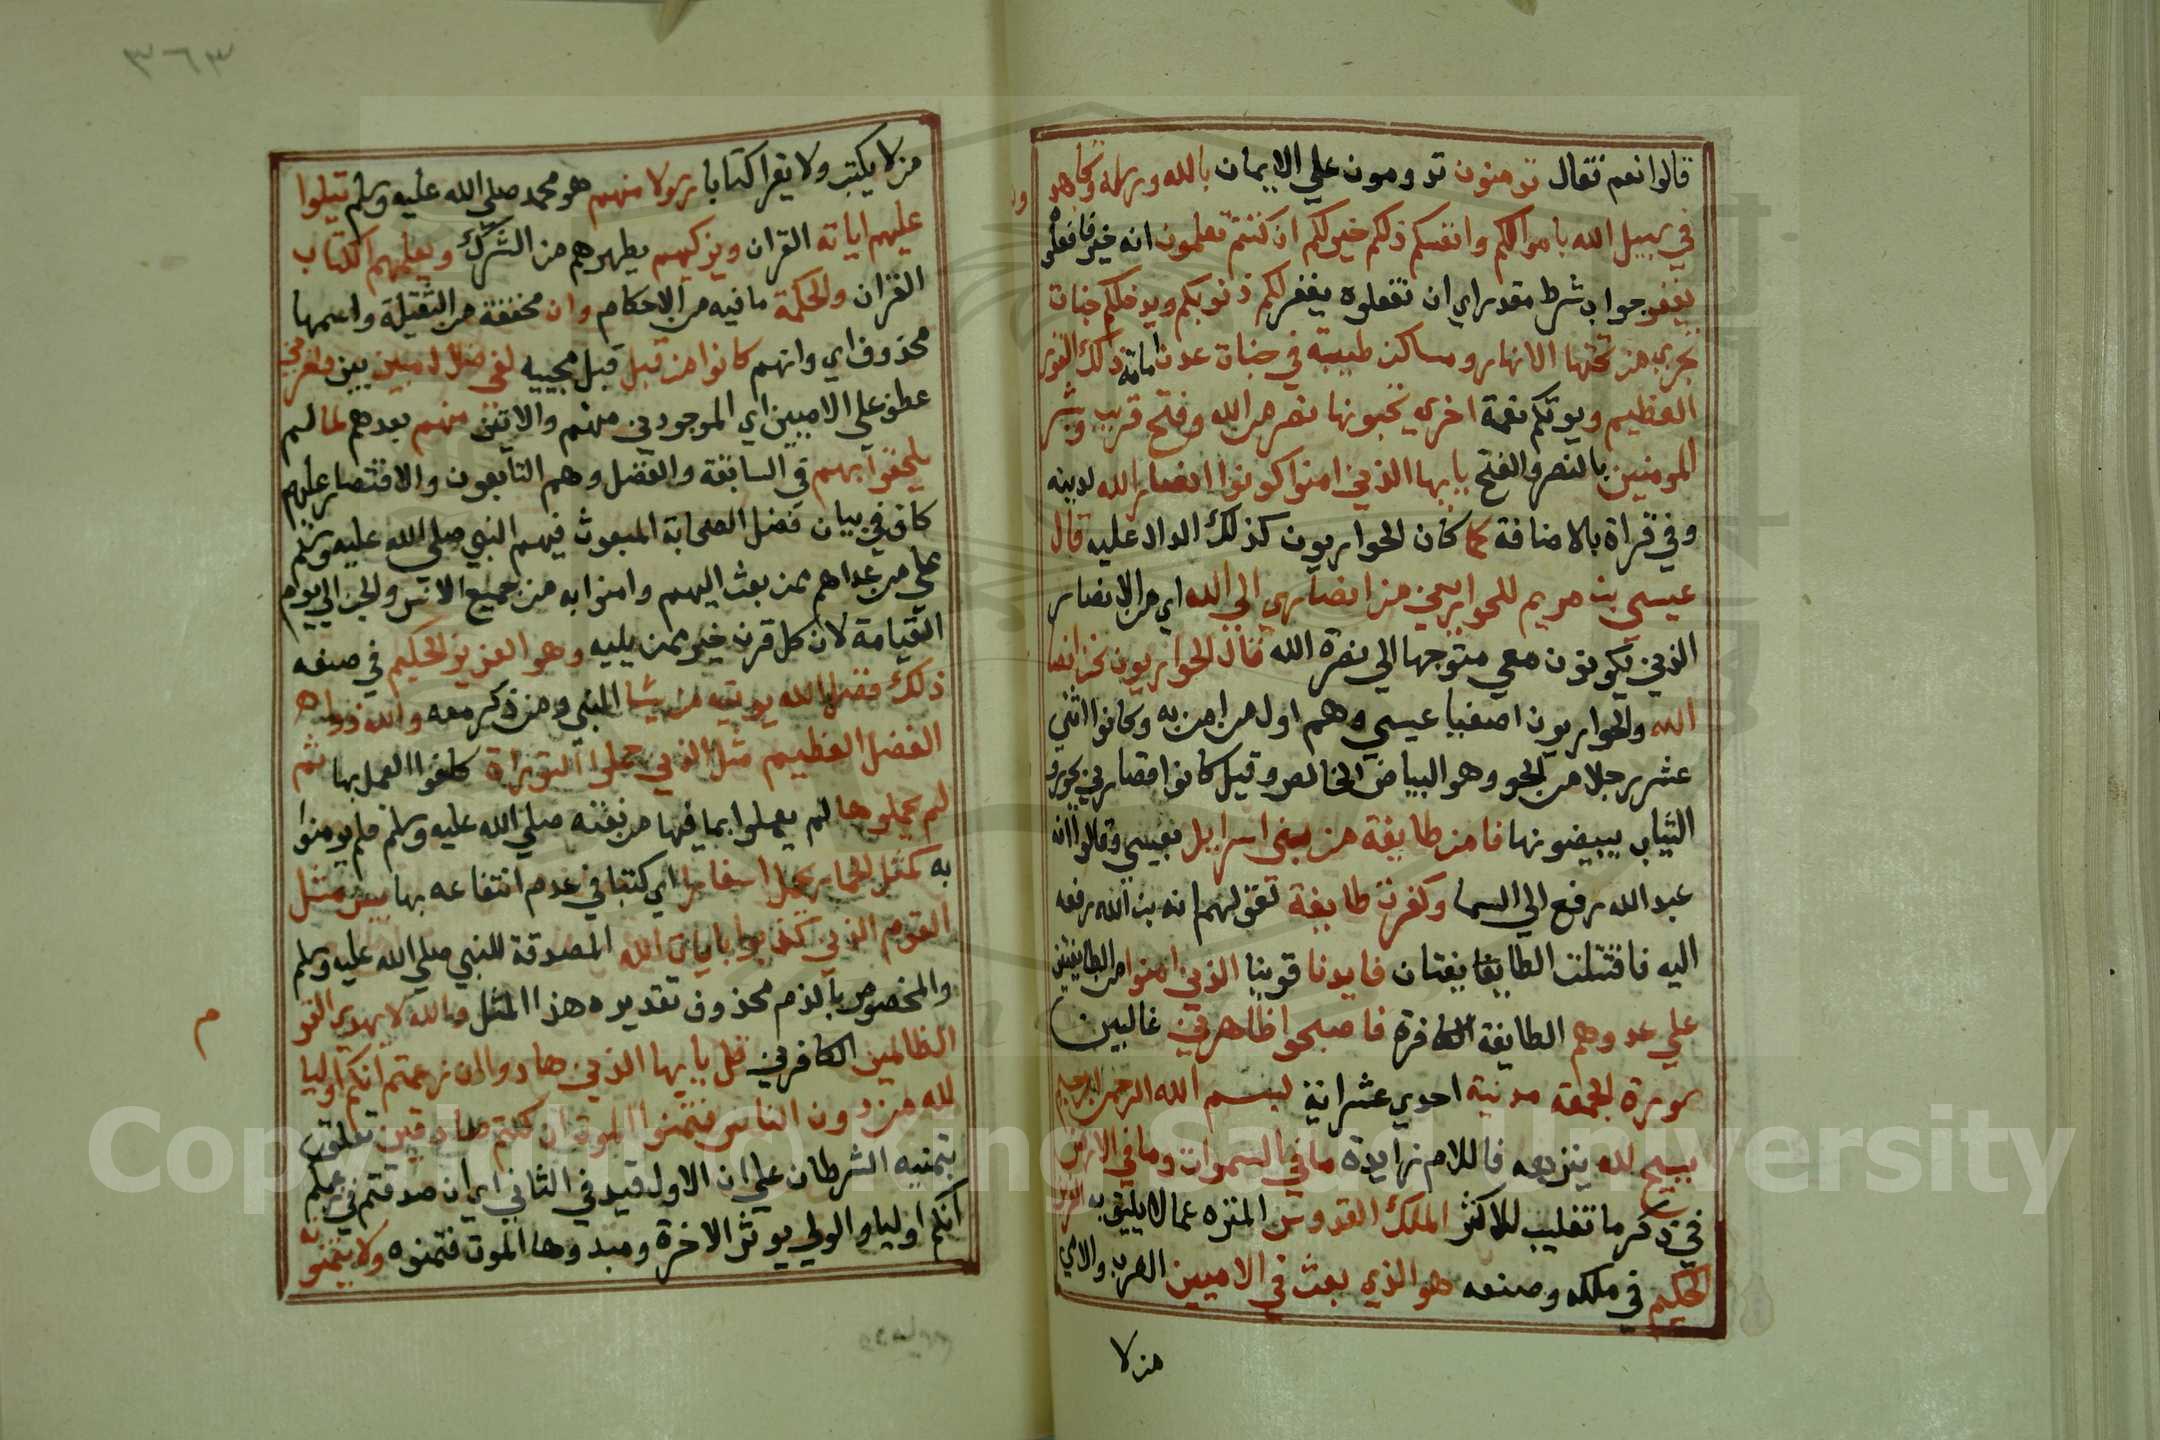 قالوا نعم فقال تومنون تدومون علي الايمان بالله ورسله وتجاهدو
ون
في سبيل الله باموالكم وانفسكم ذلكم خير لكم ان كنتم تعلمون انه خير فافعلوه
يغفر جواب شرط مقدر اي ان تفعلوه يغفر لكم ذنوبكم ويدخلكم جنات
تجري من تحتها الانهار ومساكن طيبة في جنات عدن اقامة ذلك الفوز
العظيم ويوتكم نعمة اخري تحبونها نصر من الله وفتح قريب وبشر
المومنين بالنصر والفتح يايها الذين امنوا كونوا انصار الله لدينه
وفي قراة بالاضافة كما كان الحواريون كذلك الدال عليه قال
عيسي بن مريم للحواريين من انصاري الي الله اي من الانصار
الذين يكونون معي متوجها الي نصرة الله قال الحواريون نحن انصا
الله والحواريون اصفيا عيسي وهم اول من امن به وكانوا اثني
عشر رجلا من الحور وهو البياض الخالص وقيل كانوا قصارين يحورون
الثياب يبيضونها فامن طايفة من بني اسرايل بعيسي وقالوا انه
عبد الله رفع الي السما وكفرت طايفة لقولهم انه بن الله رفعه
اليه فاقتتلت الطايفتان فايدنا قوينا الذين امنوا من الطايفتين
علي عدوهم الطايفة الكافرة فاصبحوا ظاهرين غالبين
سورة الجمعة مدنية احدي عشر اية بسم الله الرحمن الرحيم
يسبح لله ينزهه فاللام زايدة ما في السموات وما في الارض
في ذكر ما تغليب للاكثر الملك القدوس المنزه عما لا يليق به العزيز
الحكيم في ملكه وصنعه هو الذي بعث في الاميين العرب والامي
من لا
٣٦٣
من لا يكتب ولا يقرا كتابا رسولا منهم هو محمد صلي الله عليه وسلم يتلوا
عليهم اياته القران ويزكيهم يطهرهم من الشرك ويعلمهم الكتاب
القران والحكمة ما فيه من الاحكام وان مخففة من الثقيلة واسمها
محذوف اي وانهم كانوا من قبل قبل مجييه لفي ضلال مبين بين واخرين
عطف علي الاميين اي الموجودين منهم والاتين منهم بعدهم لما لم
يلحقوا بهم في السابقة والفضل وهم التابعون والاقتصار عليهم
كاف في بيان فضل الصحابة المبعوث فيهم النبي صلي الله عليه وسلم
علي من عداهم ممن بعث اليهم وامنوا به من جميع الانس والجن الي يوم
القيامة لان كل قرن خير ممن يليه وهو العزيز الحكيم في صنعه
ذلك فضل الله يوتيه من يشا النبي ومن ذكر معه والله ذو
الفضل العظيم مثل الذين حملوا التوراة كلفوا العمل بها ثم
لم يحملوها لم يعملوا بما فيها من نعته صلي الله عليه وسلم فلم يومنوا
به كمثل الحمار يحمل اسفارا اي كتبا في عدم انتفاعه بها بيس مثل
القوم الذين كذبوا بايات الله المصدقة للنبي صلي الله عليه وسلم
والمخصوص بالذم محذوف تقديره هذا المثل والله لا يهدي القو
م
الظالمين الكافرين قل يايها الذين هادوا ان زعمتم انكم اوليا
لله من دون الناس فتمنوا الموت ان كنتم صادقين تعلق
بتمنيه الشرطان علي ان الاول قيد في الثاني اي ان صدقتم في زعمكم
انكم اوليا والولي يوثر الاخرة ومبدوها الموت فتمنوه ولا يتمنونه
Copyright © King Saud University